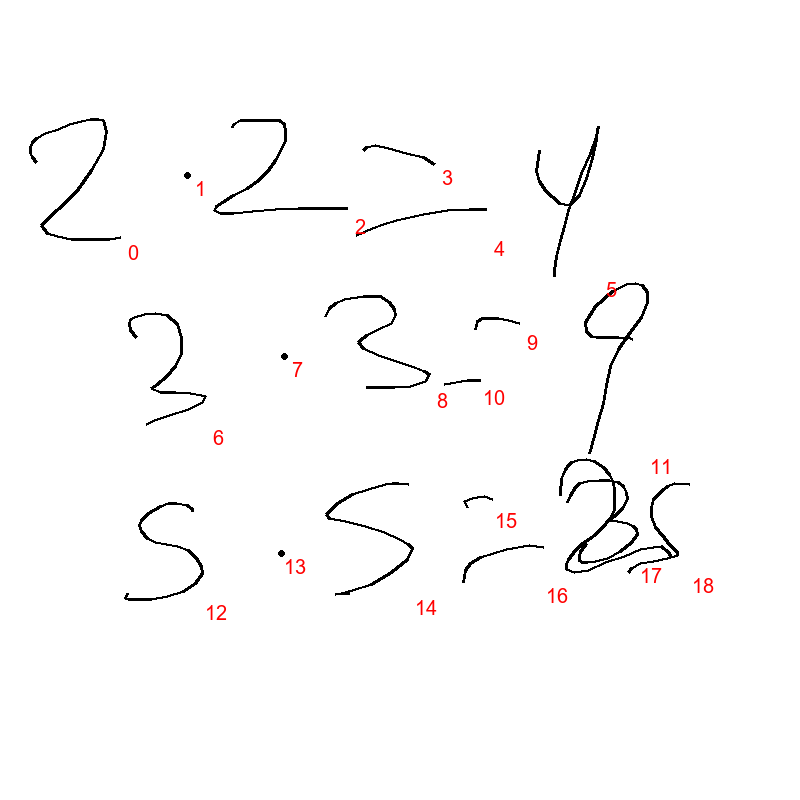 2 · 2 = 4
0 1 2 3 4 5
3 · 3 = 9
6 7 8 9 10 11
5 · 5 = 25
12 13 14 15 16 17 18